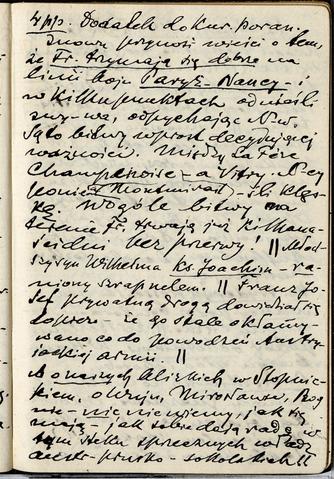 4 pp. Dodatek do Kur. poran.
znowu przynosi wieści o tem,
że Fr. trzymają się dobrze na
linii boju Paryż-Nancy - i
w kilku punktach odnieśli
zwy-wa, odpychając N-w.
Są to bitwy wprost decydującej
ważności. Między La Fère
Champenoise - a Vitry N-cy
ponieśli Montmirail - ili klęs-
kę. Wogóle bitwy na
terenie Fr. trwają już kilkana-
ście dni bez przerwy! || Młod-
szy syn Wilhelma Ks. Joachim - ra-
niony szrapnelem. || Franz Jo-
sef prywatną drogą dowiedział się
dopiero - że go stale okłamy-
wano co do powodzeń austry-
jackiej armii. ||
A o naszych bliskich w Stopnic-
kiem, o Wuju, Mirosławie, Bog
nie - nic nie wiemy, jak się
mają - jak sobie dają radę w
tym steku sprzecznych władz
austr-prusko - sokolskich!!